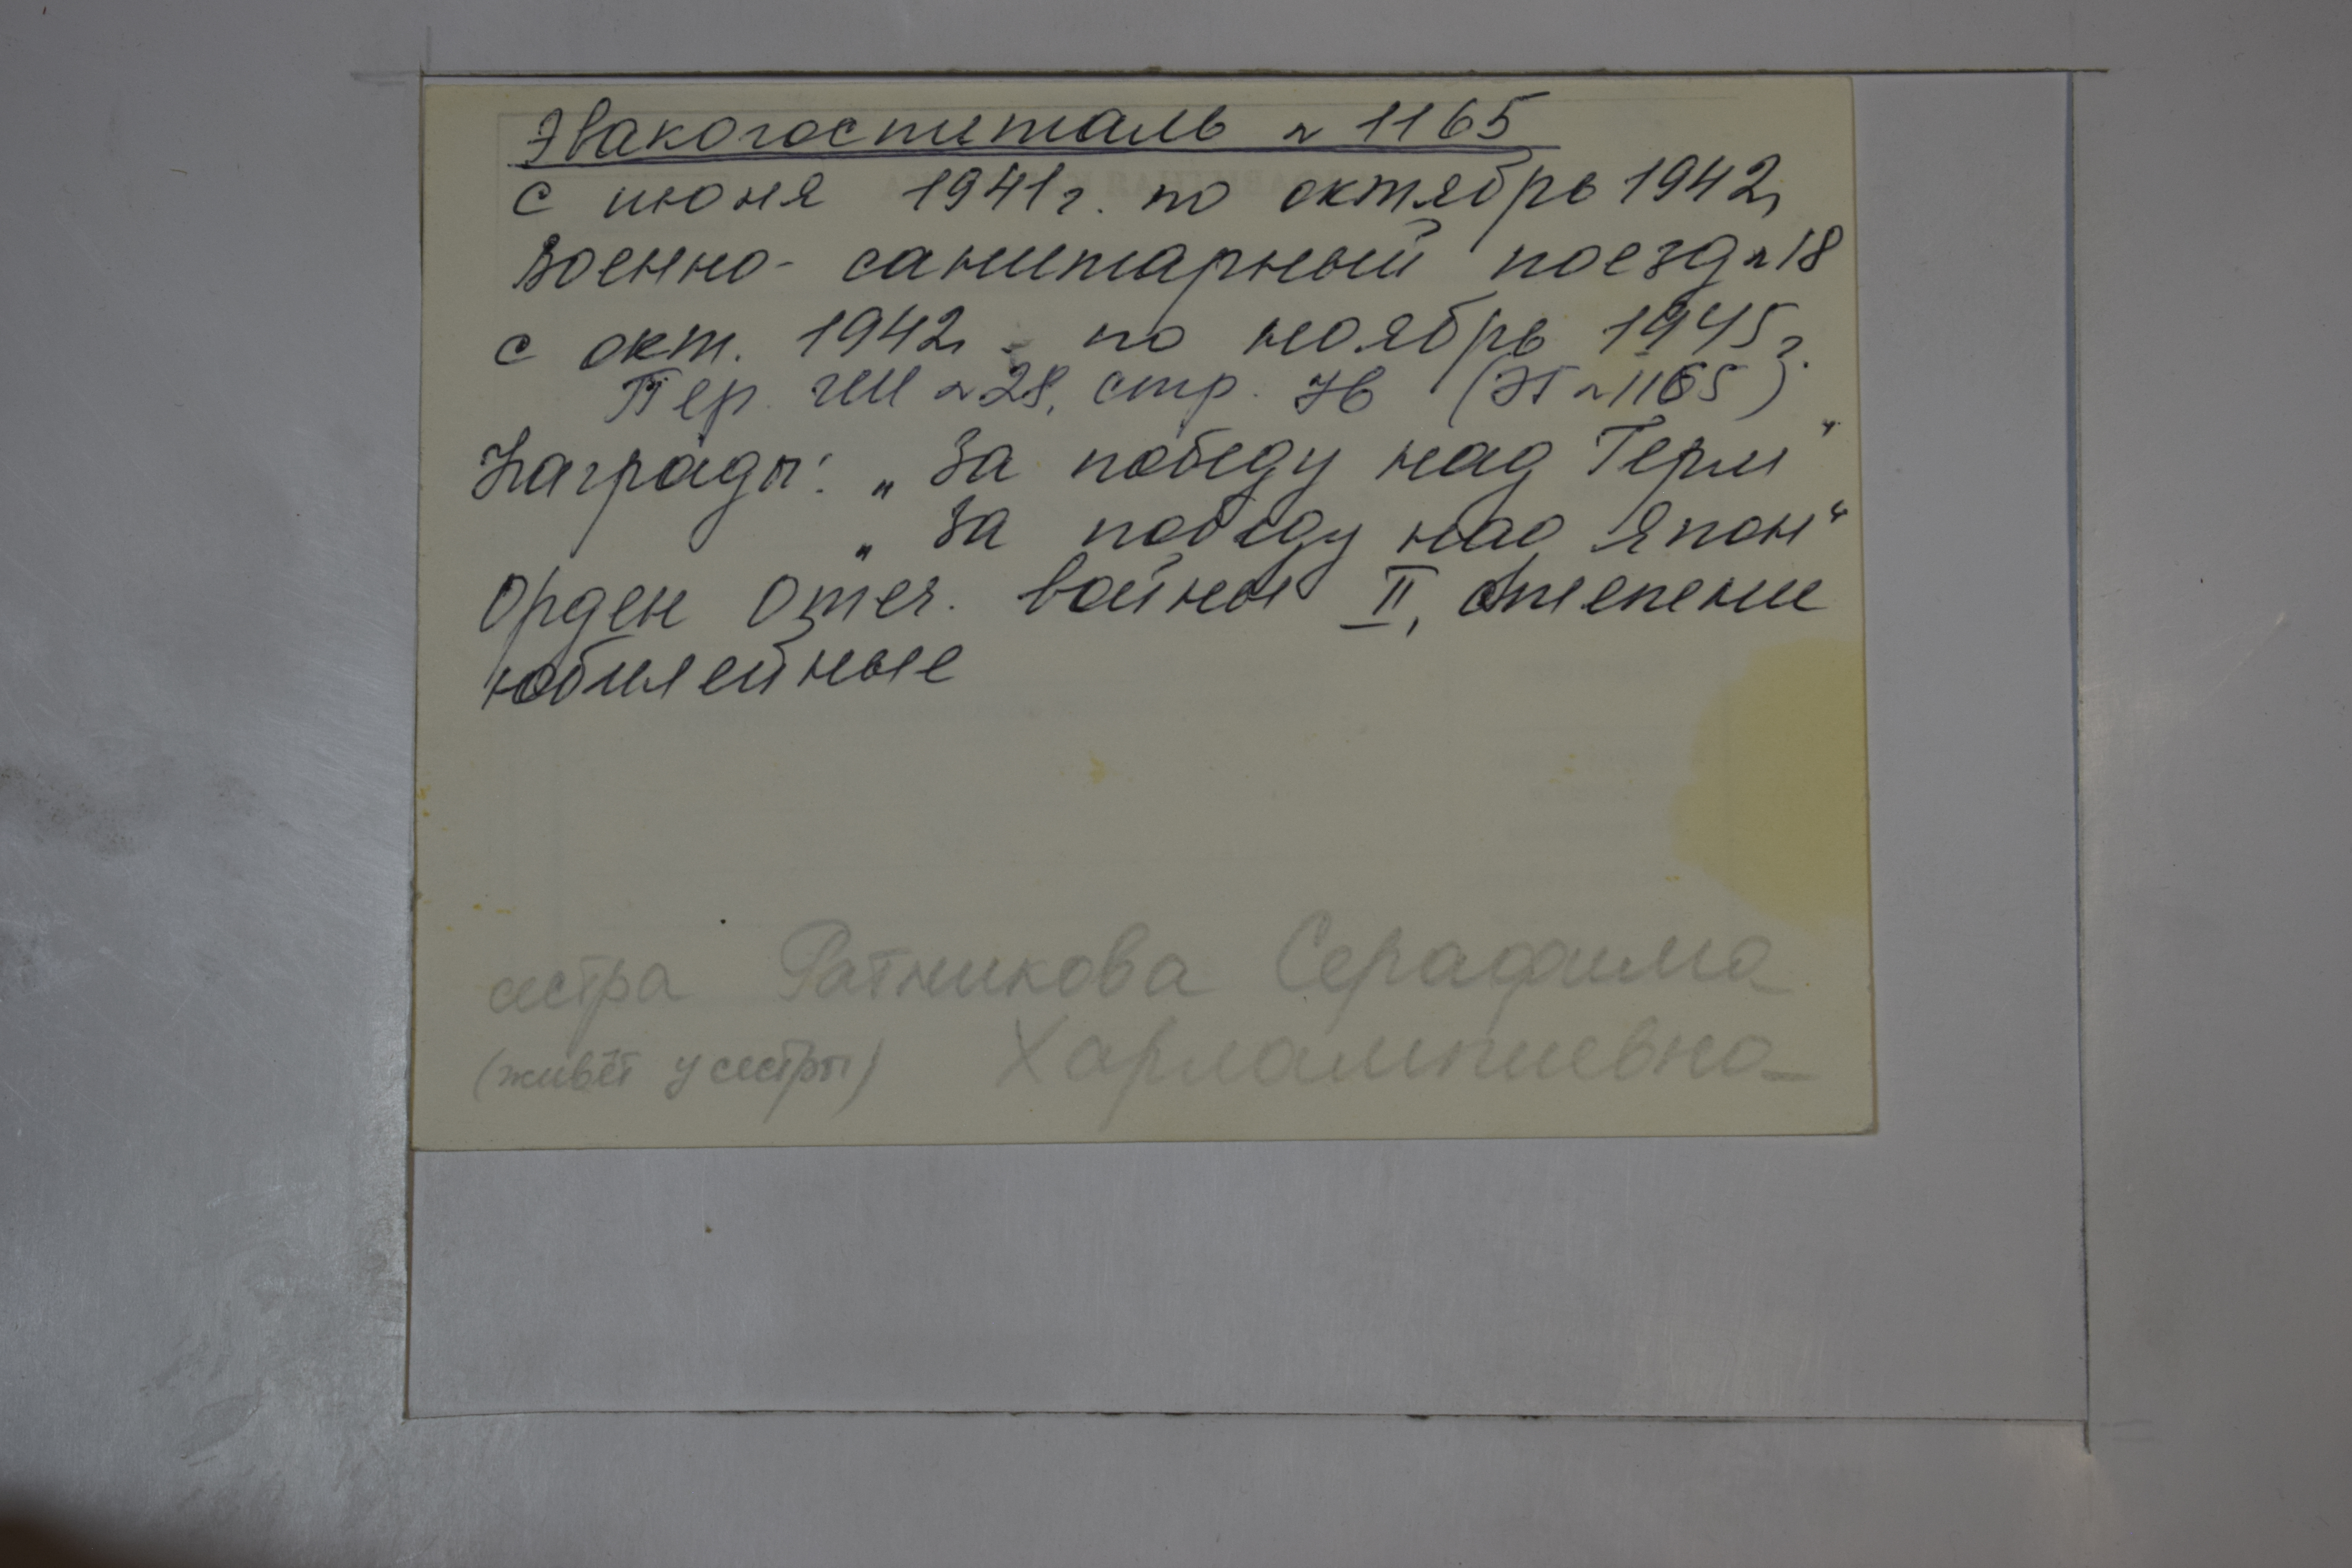 Эвакогоспиталь № 1165
с июня 1941г. по октябрь 1942г
Военно-санитарный поезд №18
с окт. 1942г. по ноябрь 1945г.
Пер. №28, стр. (ЭГ №1165)
Награды: „За победу над Герм“
„За победу над Япон“
Орден Отеч. войны II, степени
юбилейные
сестра Ратникова Серафима
(живёт у сестры) Харлампиевна